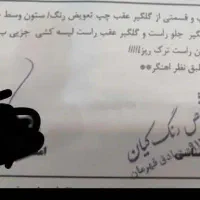 و قسمتی از گلگیر عقب چپ تعویض رنگ/ ستون وسط
گیر جلو راست و گلگیر عقب راست لیسه کشی جزیی ب
ن راست ترک ریز!!!!!
طبق نظر آهنگر**
رنگ کیان
صادق قهرمان